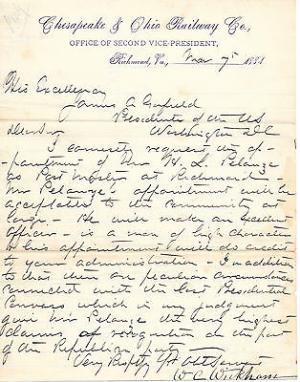 Chesapeake & Ohio Railway Co.,
OFFICE OF SECOND VICE-PRESIDENT,
Richmond, Va., Mar 7th 1881
His Excellency
James A Garfield
President of the US
Washington DC
Dear Sir
I earnestly request the ap-
pointment of Mr H. L. Pelouze
as Post Master at Richmond
Mr Pelouze's appointment will be
acceptable to the community at
large - He will make an Excellent
officer - is a man of high character
& his appointment will do credit
to your administration - In addition
to that there are peculiar circumstances
connected with the last Presidential
Canvass which in my judgment
give Mr Pelouze the very highest
claims of recognition on the part
of the Republican Party
Very Respty Yr Obt Servt
W C Wickham